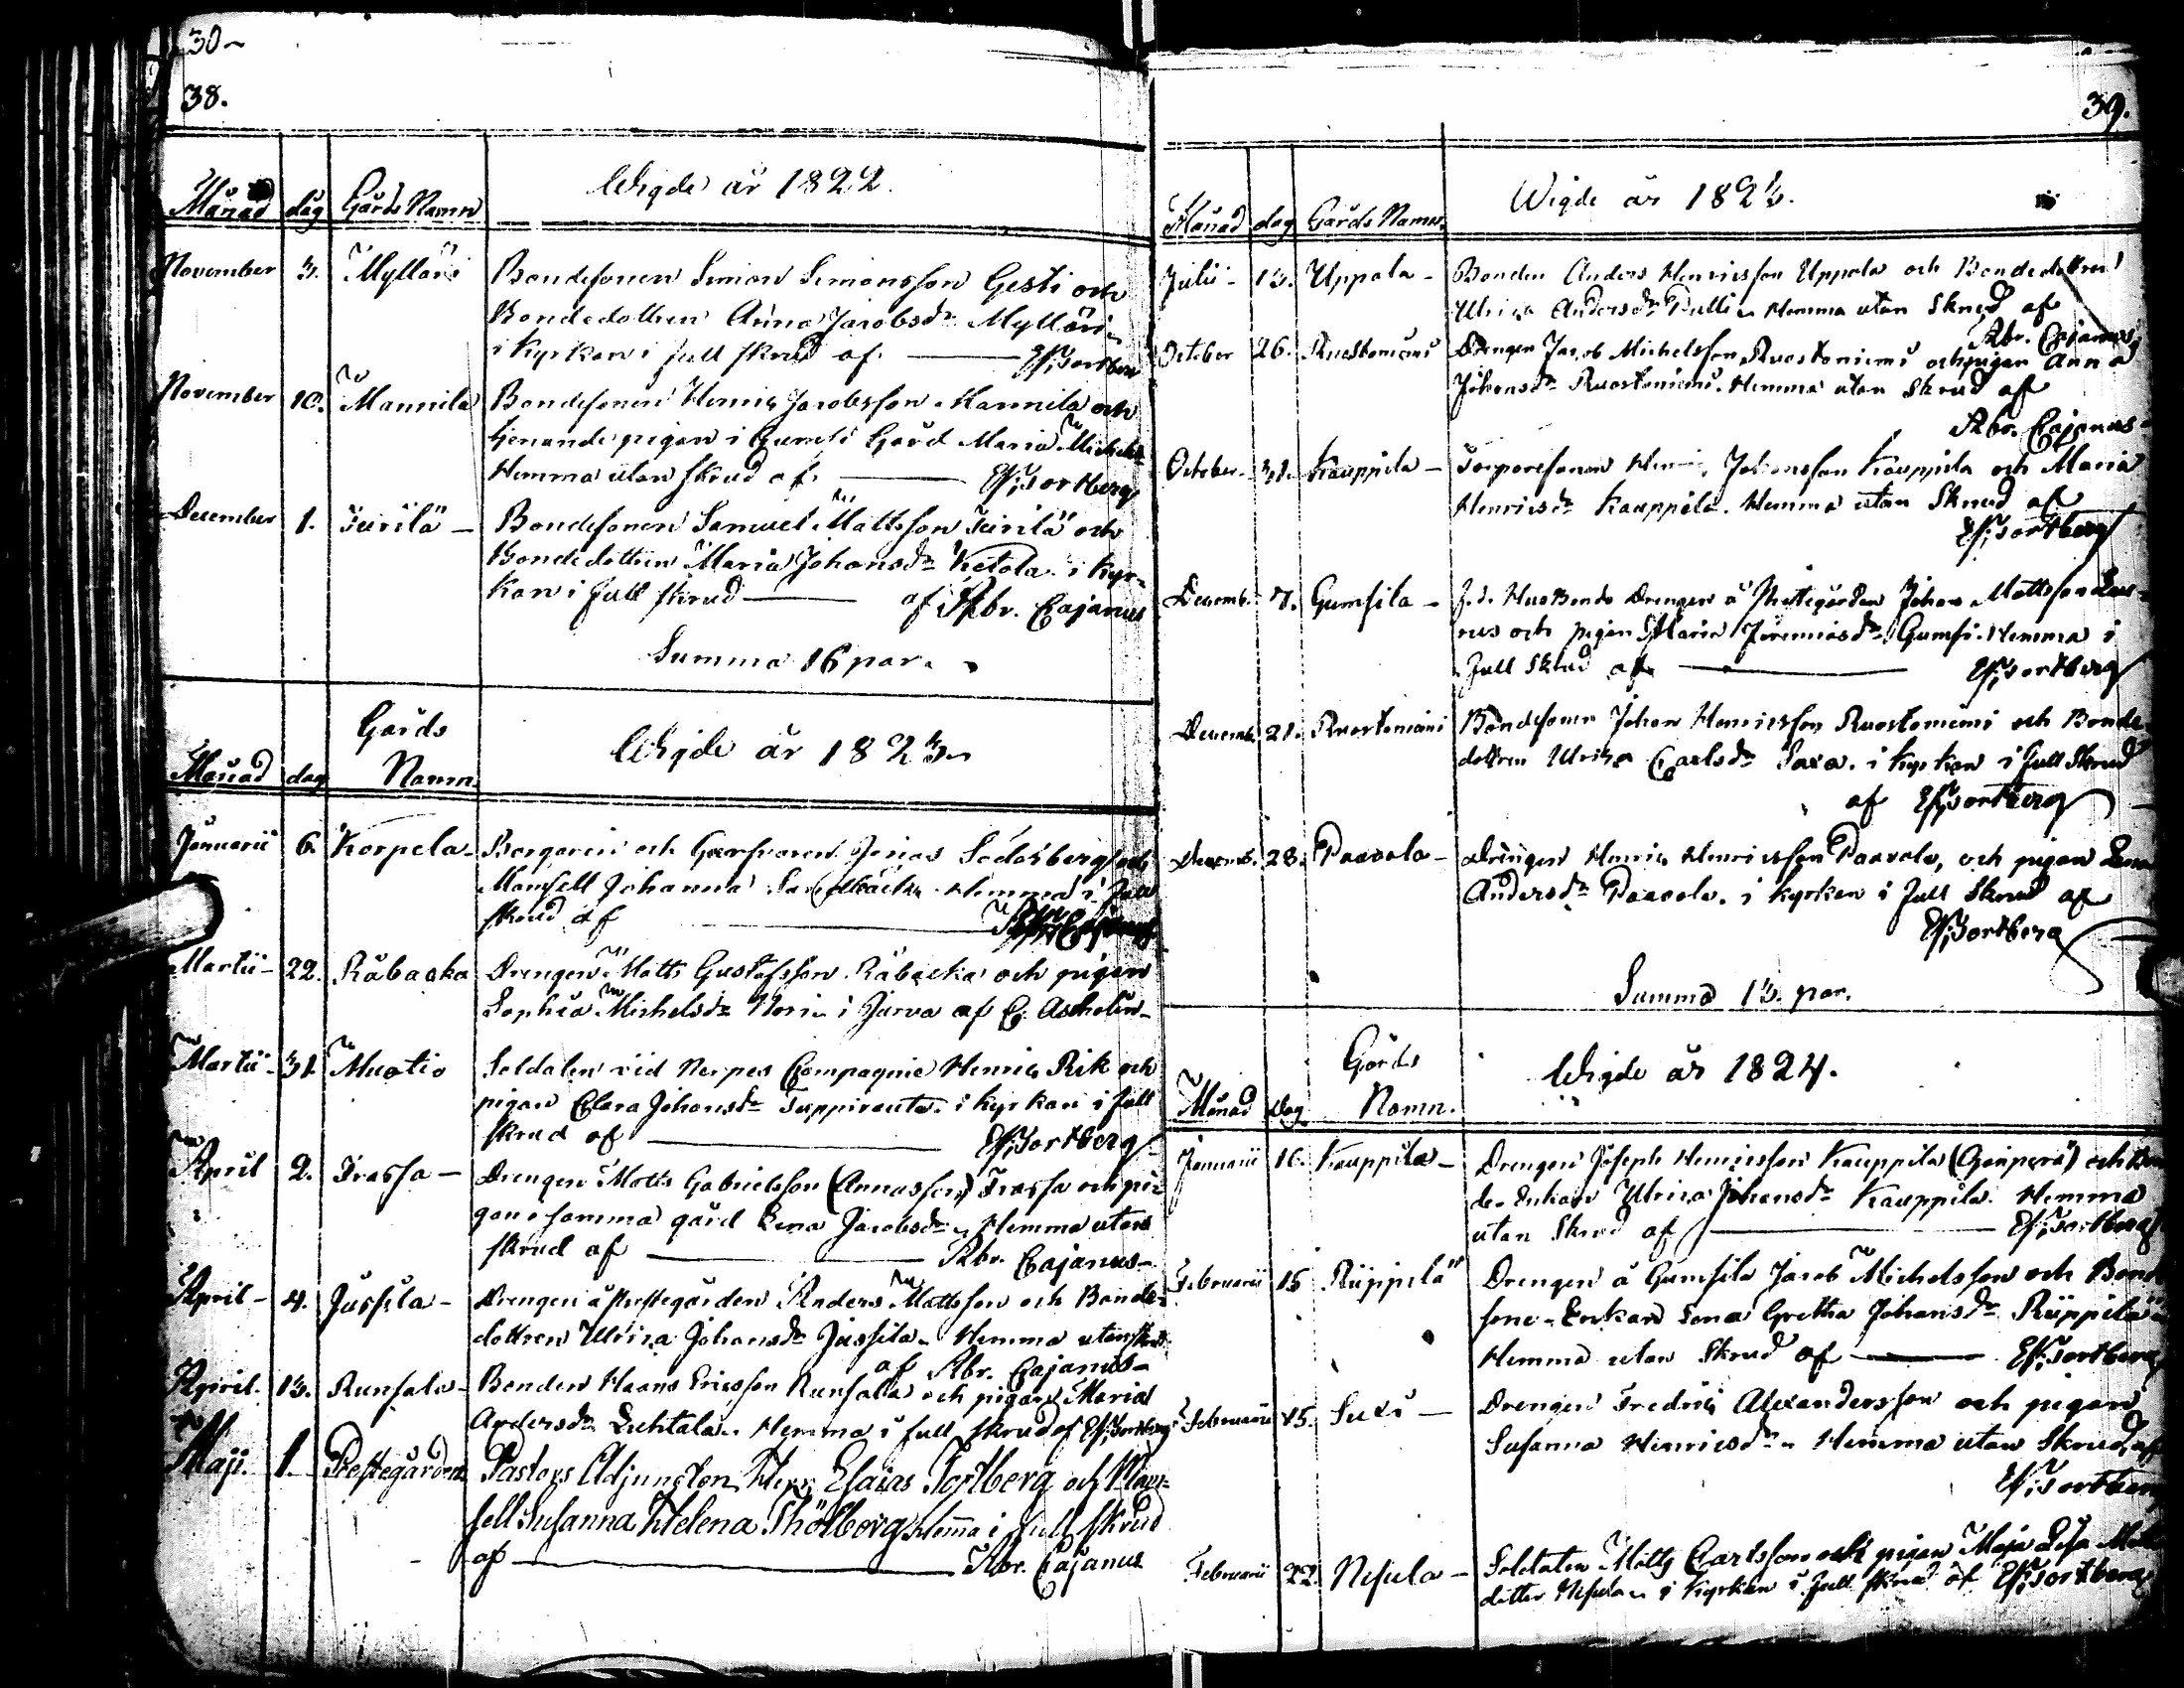 30~
38.
Wigde år 1822.
Månad dag Gårds Namn
November 3. Mylläri Bondesonen Simon Simonsson Gesti och
Bondedottren Anna Jacobsdr Mylläri
i Kyrkan i full skrud af Es; Fortberg
November 10. Mannila Bondesonen Henric Jacobsson Mannila och
tjenande pigan i Gumsi Gård Maria Michelsdr
Hemma utan skrud af Es; Fortberg
December 1. Turilä Bondesonen Samuel Mattsson Turilä och
Bondedottren Maria Johansdr Ketola. i Kyr-
kan i full skrud af Abr. Cajanus
Summa 16 par.
Gårds
Månad dag Namn. Wigde år 1823
Januarii 6. Korpela Borgaren och Garfvaren Jonas Söderberg och
Mamsell Johanna Hemma i full
skrud af
Martii 22. Råbacka Drengen Matts Gustafsson Råbacka och pigan
Sophia Michelsdr i Jurva af E. Ascholin
Martii 31. Muotio Soldaten vid Nerpes Compagnie Henric Rik och
pigan Clara Johansdr i Kyrkan i full
skrud af Es; Fortberg
April 2. Frassa Drengen Matts Gabrielsson (Annasson) Frassa och pi-
gan i samma gård Lena Jacobsdr Hemma utan
skrud af Abr. Cajanus
April 4. Jussila Drengen å Prestegården Anders Mattsson och Bonde-
dottren Ulrica Johansdr Jussila Hemma utan skrud
af Abr. Cajanus
April 13. Runsala Bonden Haans Ericsson Runsala och pigan Maria
Andersdr Luhtala Hemma i full skrud af Es; Fortberg
Maji. 1. Prestegården Pastors Adjuncten Herr Esaias Fortberg och Mam-
sell Susanna Helena Thölberg Hemma i full skrud
af Abr. Cajanus
39.
Wigde år 1823.
Månad dag Gårds Namn.
Julii 13. Uppala Bonden Anders Henricsson Uppala och Bondedottren
Ulrica Andersdr Hemma utan Skrud af
Abr. Cajanus
October 26. Ruostoniemi Drengen Jacob Michelsson Ruostoniemi och pigan Anna
Johansdr Ruostoniemi. Hemma utan Skrud af
Abr. Cajanus
October 31. Kauppila Torparesonen Henric Johansson Kauppila och Maria
Henricsdr Kauppila. Hemma utan Skrud af
Es; Fortberg
Decemb. 7. Gumsila Drengen å Prestegården Johan Mattsson
och pigan Maria Jeremiasdr Gumsi. Hemma i
full Skrud af Es; Fortberg
Decemb. 21. Ruostoniemi Bondesonen Johan Henricsson Ruostoniemi och Bonde-
dottren Ulrica Carlsdr Saxa. i Kyrkan i full Skrud
af Es; Fortberg
Decemb. 28. Paavola Drengen Henric Henricsson Paavola, och pigan Lena
Andersdr Paavola. i Kyrkan i full Skrud af
Es; Fortberg
Summa 13. par.
Gårds
Månad Dag Namn. Wigde år 1824.
Januarii 16. Kauppila Drengen Joseph Henricsson Kauppila och Bon-
de Enkan Ulrica Johansdr Kauppila. Hemma
utan Skrud af Es; Fortberg
Februarii 15 Riippilä Drengen å Gumsila Jacob Michelsson och Bonde-
sone-Enkan Lena Gretha Johansdr Riippilä
Hemma utan Skrud af Es; Fortberg
Februarii 15. Suxi Drengen Fredric Alexandersson och pigan
Susanna Henricsdr Hemma utan Skrud af
Es; Fortberg
Februarii 22. Nisula Soldaten Matts Carlsson och pigan Maja Lisa
dotter Nisula i Kyrkan i full skrud af Es; Fortberg